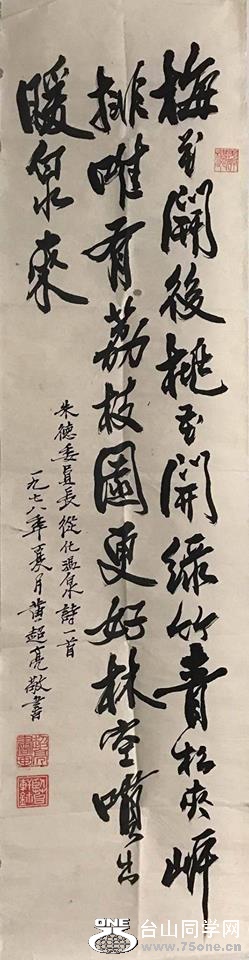 梅花開後桃花開綠竹青松夾岸
排唯有荔枝園更好林空噴出
暖泉來
朱德委員長從化温泉詩一首
一九七八年夏月黃超亮敬書
ONE
台山同学网
www.75one.cn